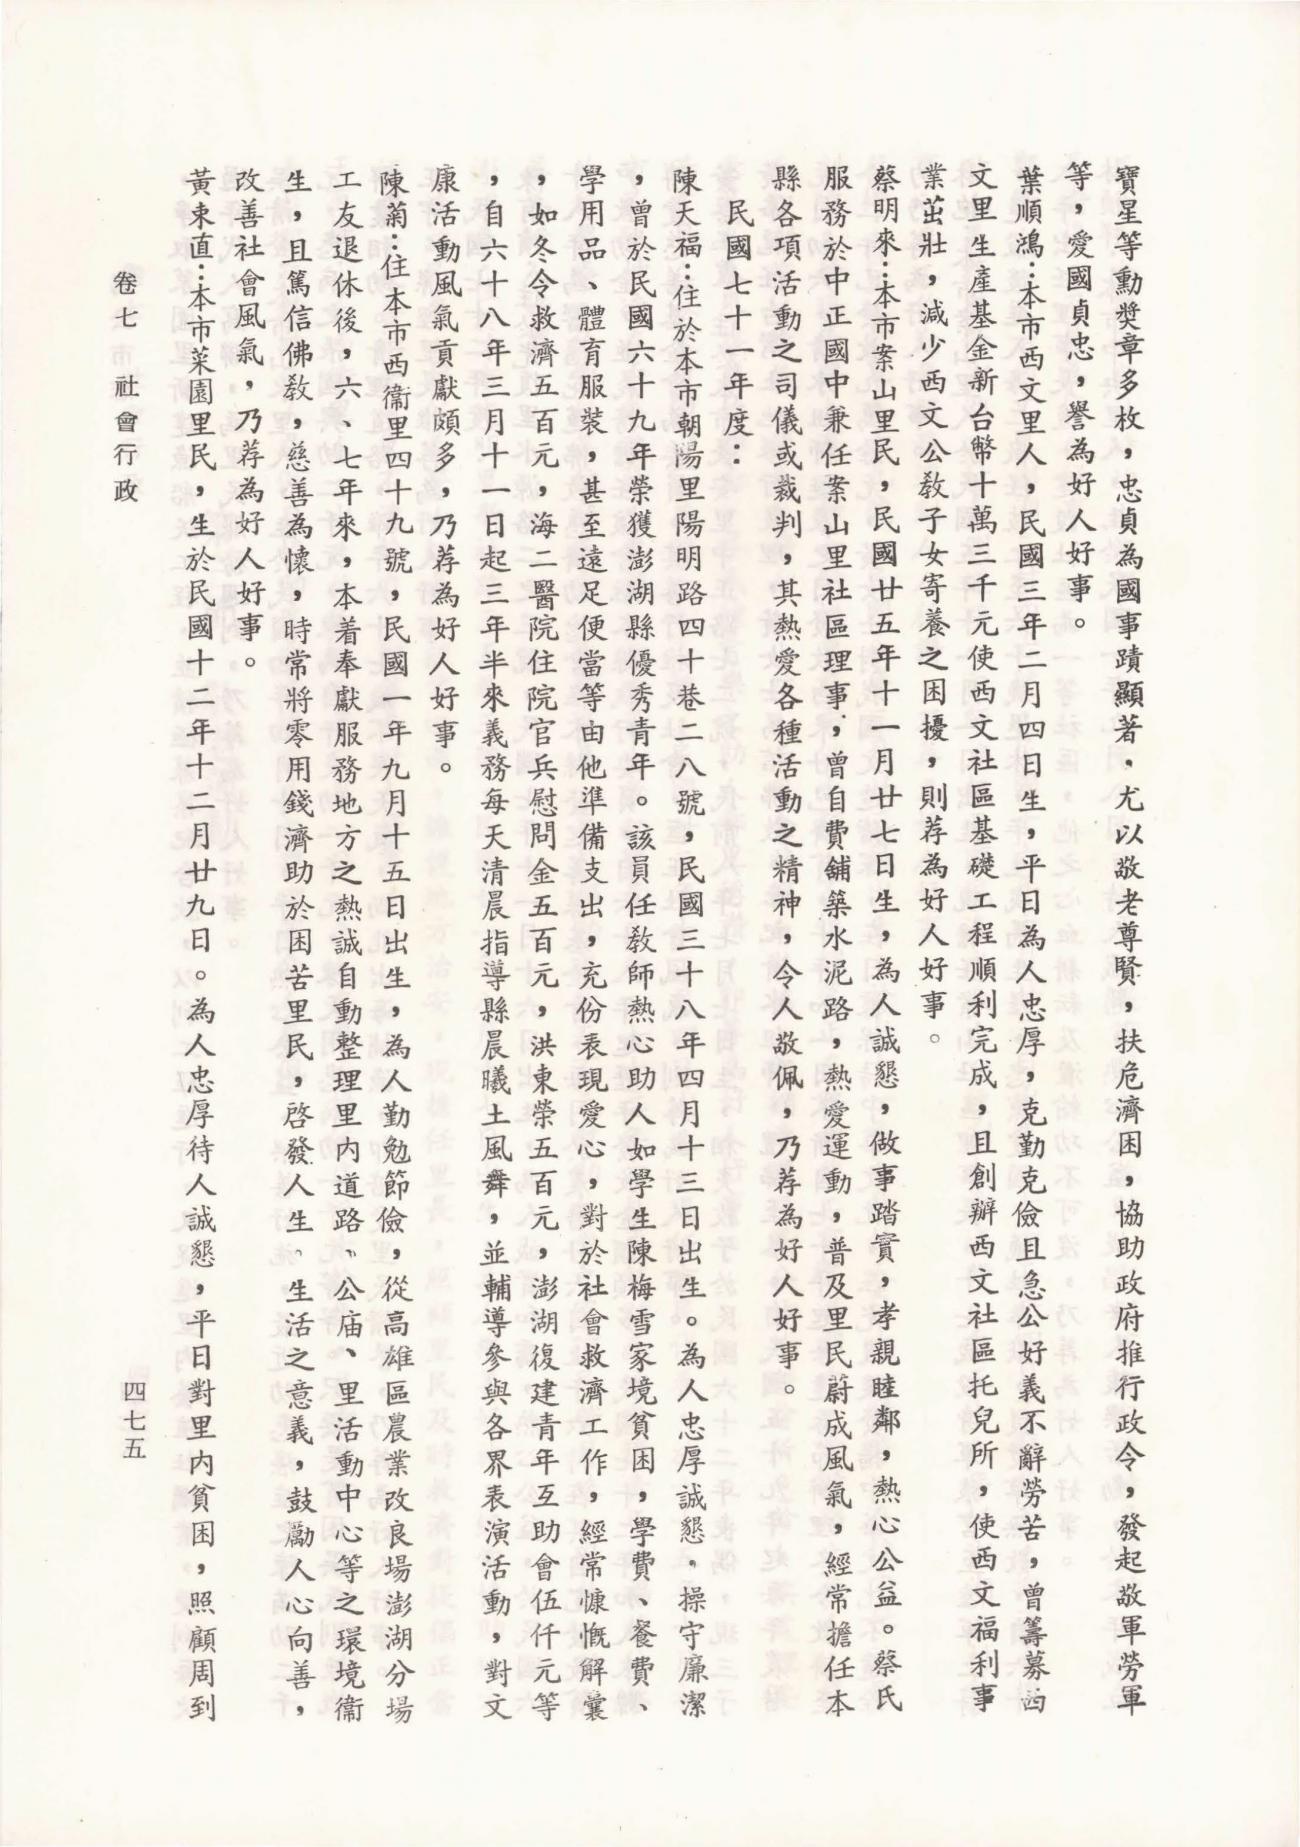 寶星等勳獎章多枚，忠貞為國事蹟顯著，尤以敬老尊賢，扶危濟困，協助政府推行政令，發起敬軍勞軍
等，愛國貞忠，譽為好人好事。
葉順鴻：本市西文里人，民國三年二月四日生，平日為人忠厚，克勤克儉且急公好義不辭勞苦，曾籌募西
文里生產基金新台幣十萬三千元使西文社區基礎工程順利完成，且創辦西文社區托兒所，使西文福利事
業茁壯，減少西文公教子女寄養之困擾，則荐為好人好事。
蔡明來：本市案山里民，民國廿五年十一月廿七日生，為人誠懇，做事踏實，孝親睦鄰，熱心公益。蔡氏
服務於中正國中兼任案山里社區理事，曾自費舖築水泥路，熱愛運動，普及里民蔚成風氣，經常擔任本
縣各項活動之司儀或裁判，其熱愛各種活動之精神，令人敬佩，乃荐為好人好事。
民國七十一年度：
陳天福：住於本市朝陽里陽明路四十巷二八號，民國三十八年四月十三日出生。為人忠厚誠懇，操守廉潔
，曾於民國六十九年榮獲澎湖縣優秀青年。該員任教師熱心助人如學生陳梅雪家境貧困，學費、餐費、
學用品、體育服裝，甚至遠足便當等由他準備支出，充份表現愛心，對於社會救濟工作，經常慷慨解囊
，如冬令救濟五百元，海二醫院住院官兵慰問金五百元，洪東榮五百元，澎湖復建青年互助會伍仟元等
，自六十八年三月十一日起三年半來義務每天清晨指導縣晨曦土風舞，並輔導參與各界表演活動，對文
康活動風氣貢獻頗多，乃荐為好人好事。
陳菊：住本市西衞里四十九號，民國一年九月十五日出生，為人勤勉節儉，從高雄區農業改良場澎湖分場
工友退休後，六、七年來，本着奉獻服務地方之熱誠自動整理里內道路、公庙、里活動中心等之環境衞
生，且篤信佛教，慈善為懷，時常將零用錢濟助於困苦里民，啓發人生、生活之意義，鼓勵人心向善，
改善社會風氣，乃荐為好人好事。
黃束直：本市菜園里民，生於民國十二年十二月廿九日。為人忠厚待人誠懇，平日對里內貧困，照顧周到
卷七　社會行政
四七五